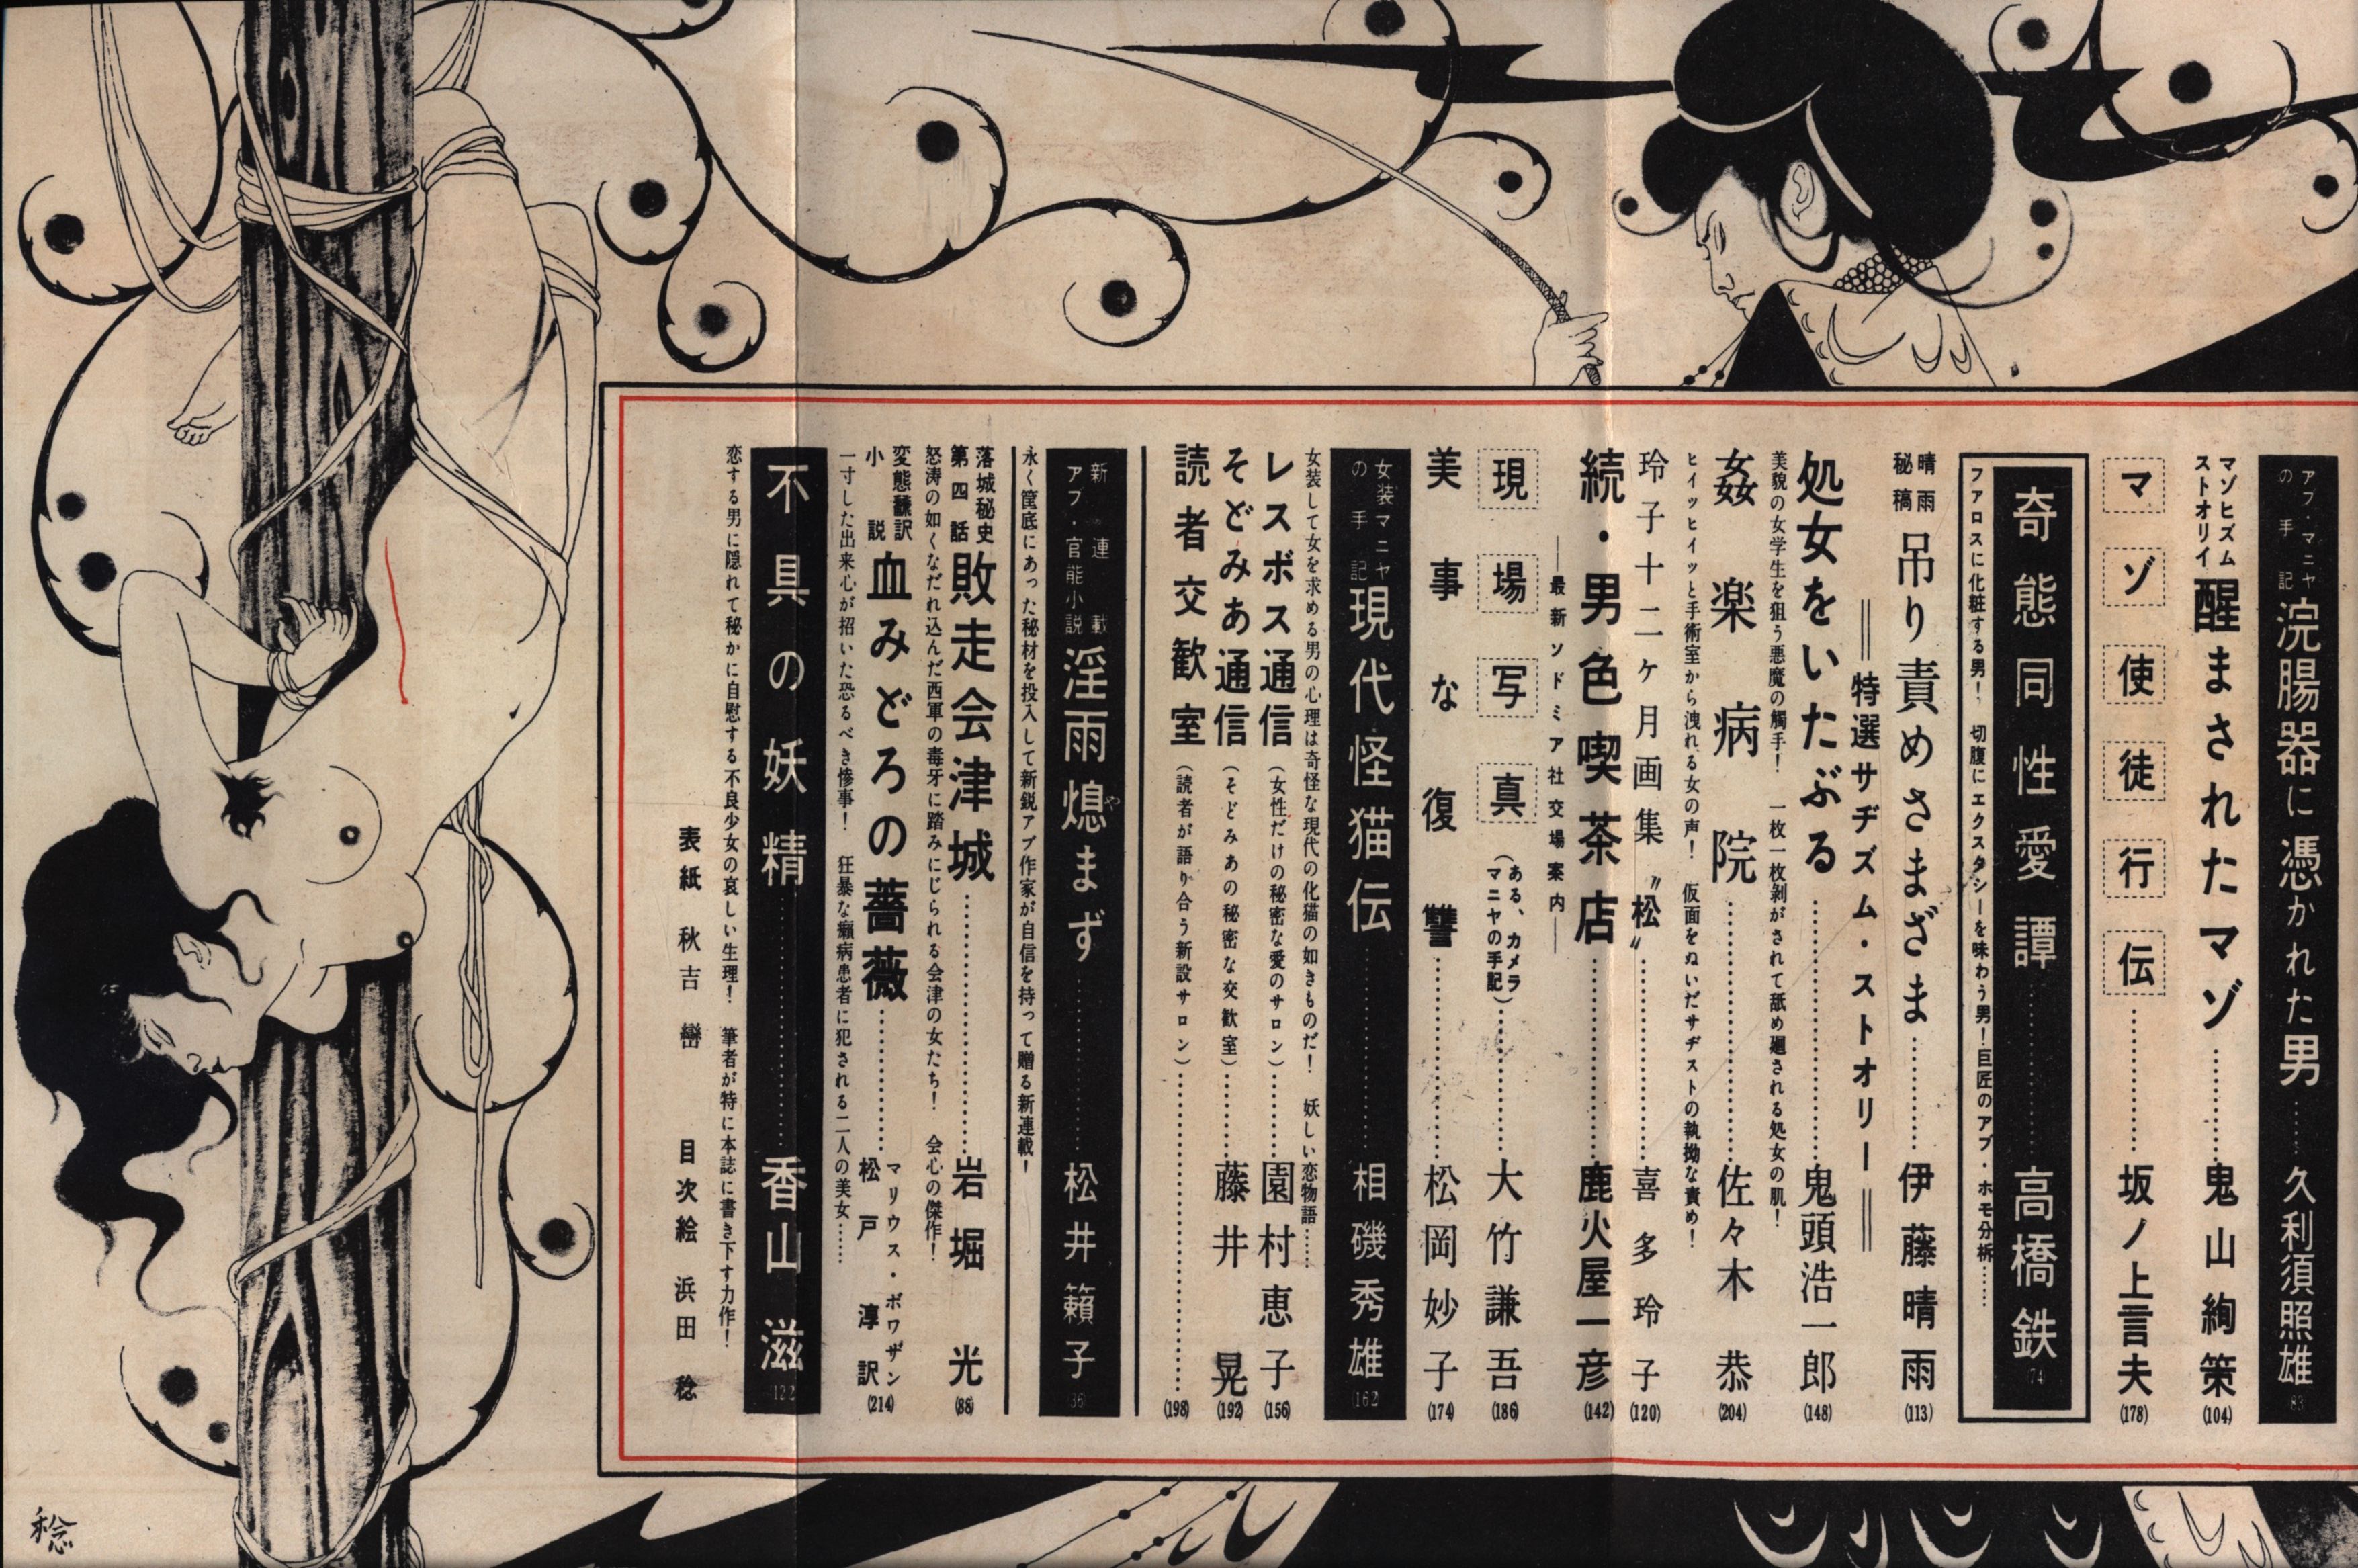 アブ・マニヤの手記 浣腸器に憑かれた男……久利須照雄 (83)
マゾヒズムストオリイ 醒まされたマゾ……鬼山絢策 (104)
マゾ使徒行伝……坂ノ上言夫 (178)
奇態同性愛譚……高橋鉄 (74)
ファロスに化粧する男! 切腹にエクスタシーを味わう男!巨匠のアブ・ホモ分析……
晴雨秘稿 吊り責めさまざま……伊藤晴雨 (113)
＝特選サヂズム・ストオリー＝
処女をいたぶる……鬼頭浩一郎 (148)
美貌の女学生を狙う悪魔の觸手! 一枚一枚剥がされて舐め廻される処女の肌!
姦楽病院……佐々木恭 (204)
ヒイッヒイッと手術室から洩れる女の声! 仮面をぬいだサヂストの執拗な責め!
玲子十二ケ月画集〝松〟……喜多玲子 (120)
続・男色喫茶店……鹿火屋一彦 (142)
―最新ソドミア社交場案内―
現場写真(ある、カメラマニヤの手記)……大竹謙吾 (186)
美事な復讐……松岡妙子 (174)
女装マニヤの手記 現代怪猫伝……相磯秀雄 (162)
女装して女を求める男の心理は奇怪な現代の化猫の如きものだ! 妖しい恋物語……
レスボス通信(女性だけの秘密な愛のサロン)……園村恵子 (156)
そどみあ通信(そどみあの秘密な交歓室)……藤井晃 (192)
読者交歓室(読者が語り合う新設サロン)…… (198)
新連載 アブ・官能小説 淫雨熄まず……松井籟子 (36)
や
永く筐底にあった秘材を投入して新鋭アブ作家が自信を持って贈る新連載!
落城秘史 第四話 敗走会津城……岩堀光 (88)
怒涛の如くなだれ込んだ西軍の毒牙に踏みにじられる会津の女たち! 会心の傑作!
変態飜訳小説 血みどろの薔薇……マリウス・ボワザン 松戸淳訳 (214)
一寸した出来心が招いた恐るべき惨事! 狂暴な癩病患者に犯される二人の美女……
不具の妖精……香山滋 (122)
恋する男に隠れて秘かに自慰する不良少女の哀しい生理! 筆者が特に本誌に書き下す力作!
表紙 秋吉巒 目次絵 浜田稔
稔